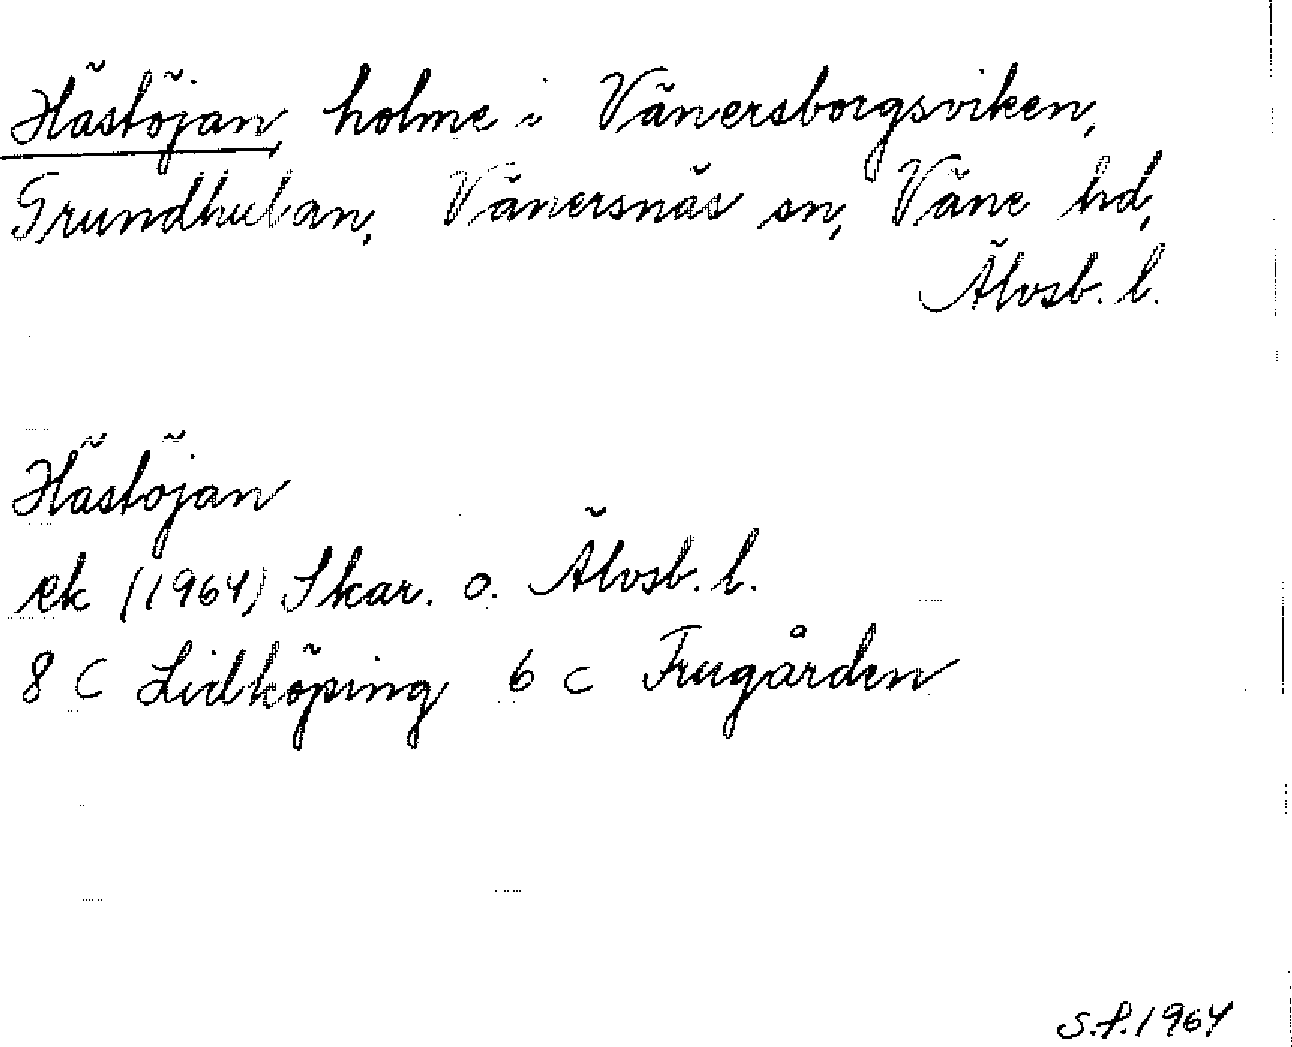 Hästöjan, holme i Vänersborgsviken,
Grundhulan, Vänersnäs sn, Väne hd,
Älvsb. l.
Hästöjan
ek (1964) Skar. o. Älvsb. l.
8 C Lidköping 6 c Frugården
S.F. 1964